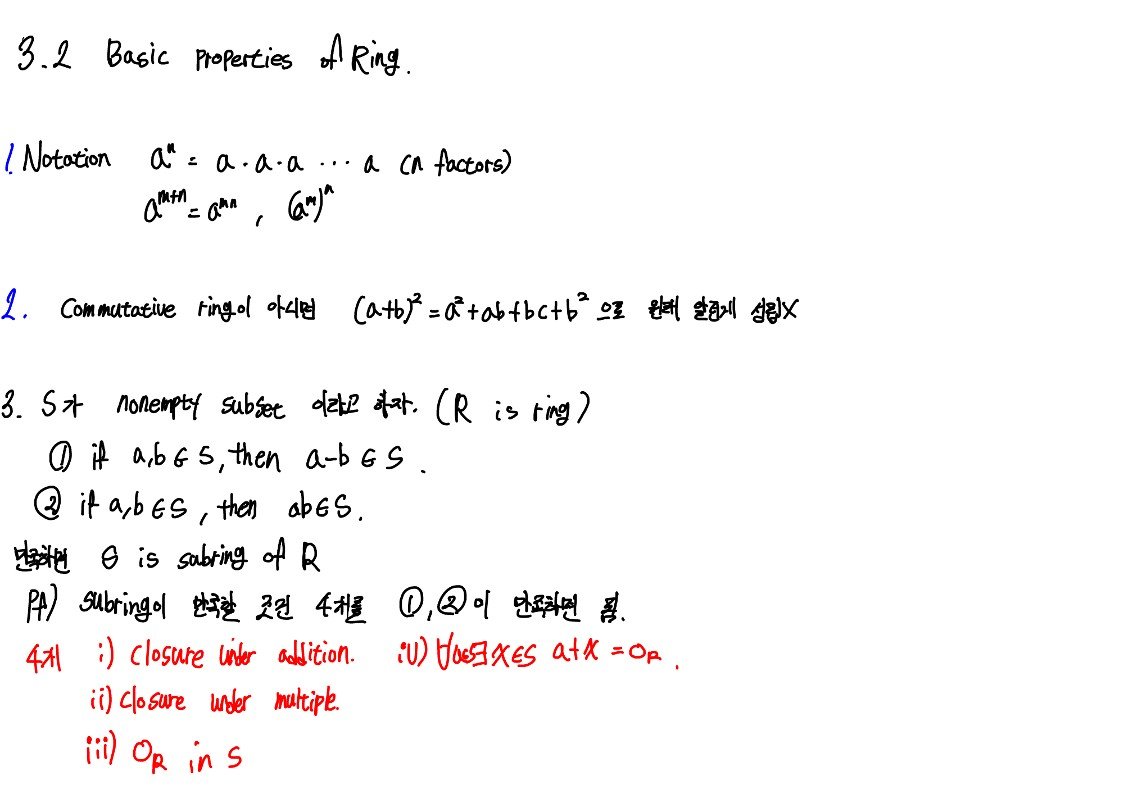 3.2 Basic properties of Ring.
1. Notation aⁿ = a · a · a ··· a (n factors)
aᵐ⁺ⁿ = aᵐⁿ , (aᵐ)ⁿ
2. Commutative ring이 아니면 (a+b)² = a² + ab + bc + b² 으로 원래 알던게 성립X
3. S가 nonempty subset 이라고 하자. (R is ring)
① if a,b ∈ S, then a-b ∈ S .
② if a,b ∈ S , then ab ∈ S.
만족하면 S is subring of R
pf) subring이 만족할 조건 4개를 ①,②이 만족하면 됨.
4개 i) closure under addition. iv) ∀a∈S ∃ x∈S a+x = 0_R .
ii) closure under multiple.
iii) 0_R in S